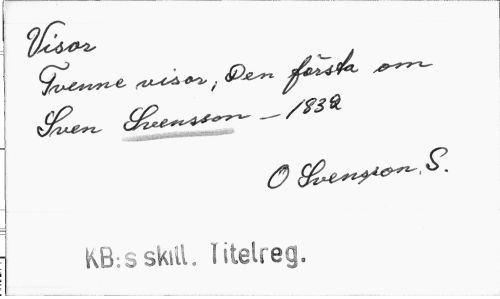 Visor
Tvenne visor, Den första om
Sven Svensson – 1832
O Svensson, S.
KB:s skill. Titelreg.